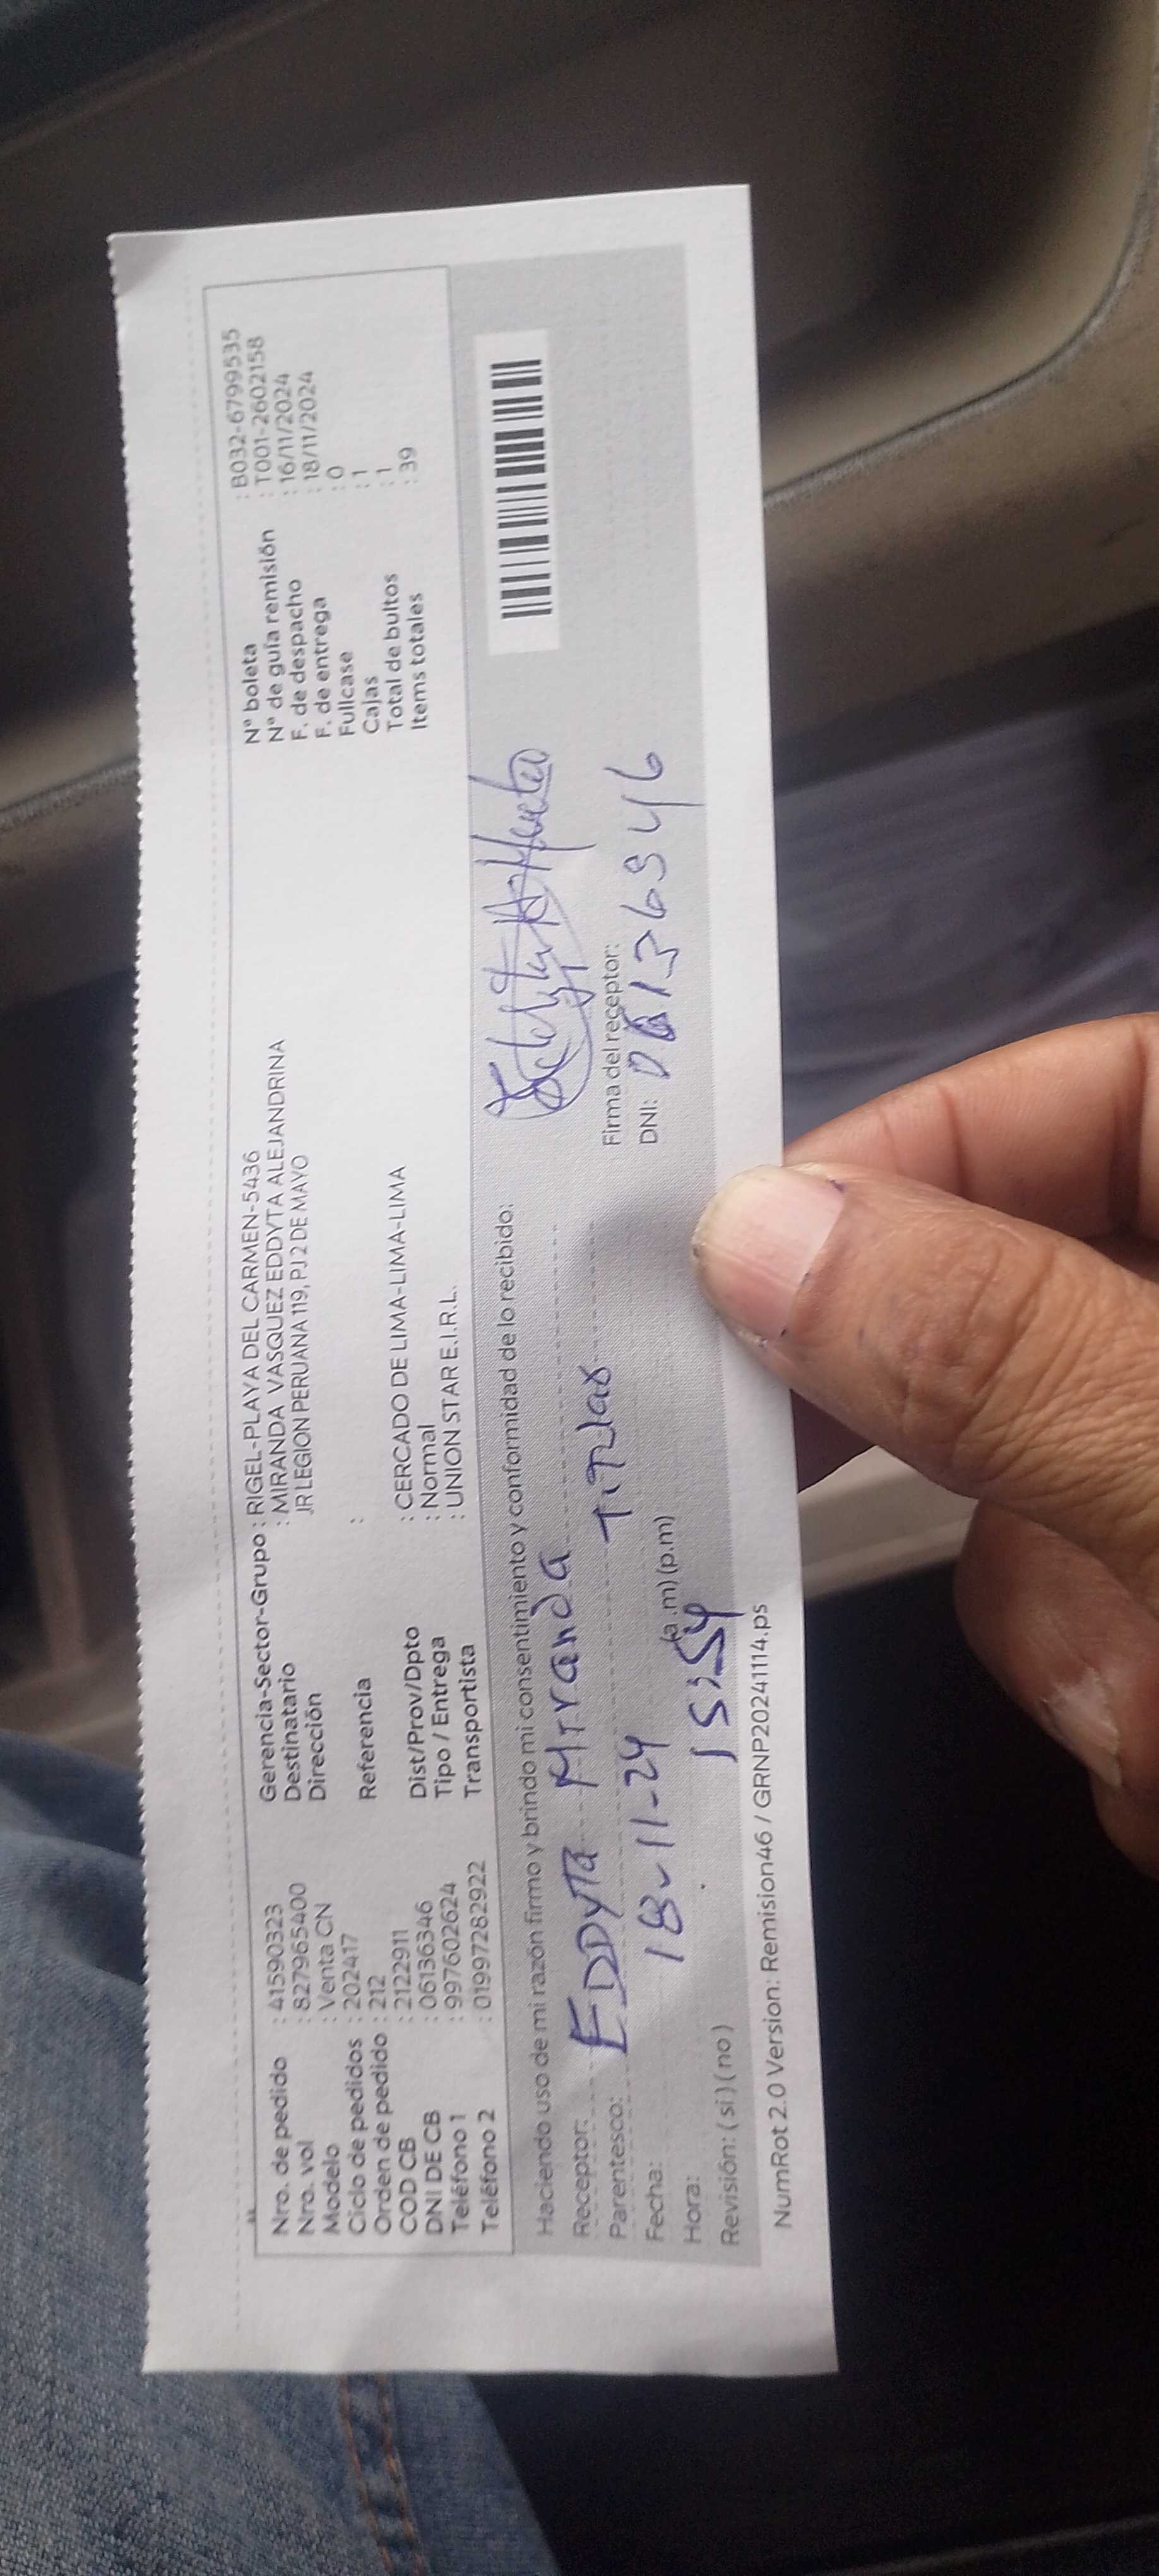 Nro. de pedido : 41590323
Nro. vol : 827965400
Modelo : Venta CN
Ciclo de pedidos : 202417
Orden de pedido : 212
COD CB : 2122911
DNI DE CB : 06136346
Teléfono 1 : 997602624
Teléfono 2 : 01997282922
Gerencia-Sector-Grupo : RIGEL-PLAYA DEL CARMEN-5436
Destinatario : MIRANDA VASQUEZ EDDYTA ALEJANDRINA
Dirección JR LEGION PERUANA 119, PJ 2 DE MAYO
Referencia :
Dist/Prov/Dpto : CERCADO DE LIMA-LIMA-LIMA
Tipo / Entrega : Normal
Transportista : UNION STAR E.I.R.L.
N° boleta : B032-6799535
N° de guía remisión : T001-2602158
F. de despacho : 16/11/2024
F. de entrega : 18/11/2024
Fullcase : 0
Cajas : 1
Total de bultos : 1
Items totales : 39
Haciendo uso de mi razón firmo y brindo mi consentimiento y conformidad de lo recibido:
Receptor: EDDYTA Miranda
Parentesco: Titular
Fecha: 18-11-24
Hora: 15:54 (a.m) (p.m)
Revisión: ( si ) ( no )
Firma del receptor:
DNI:
NumRot 2.0 Version: Remision46 / GRNP20241114.ps